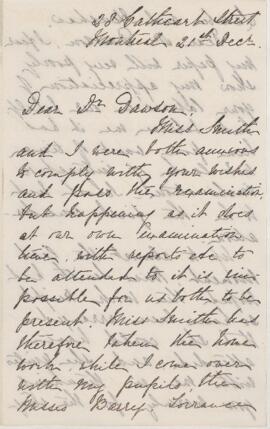 28 Cathcart Street
Montreal 21st Decr.
Dear Dr Dawson,
Miss Smith
and I were both anxious
to comply with your wishes
and pass the examination
but happening as it does
at our own examination
time, with reports etc to
be attended to it is im-
possible for us both to be
present. Miss Smith has
therefore taken the home
work while I come over
with my pupils, the
Misses Barry Lorrance